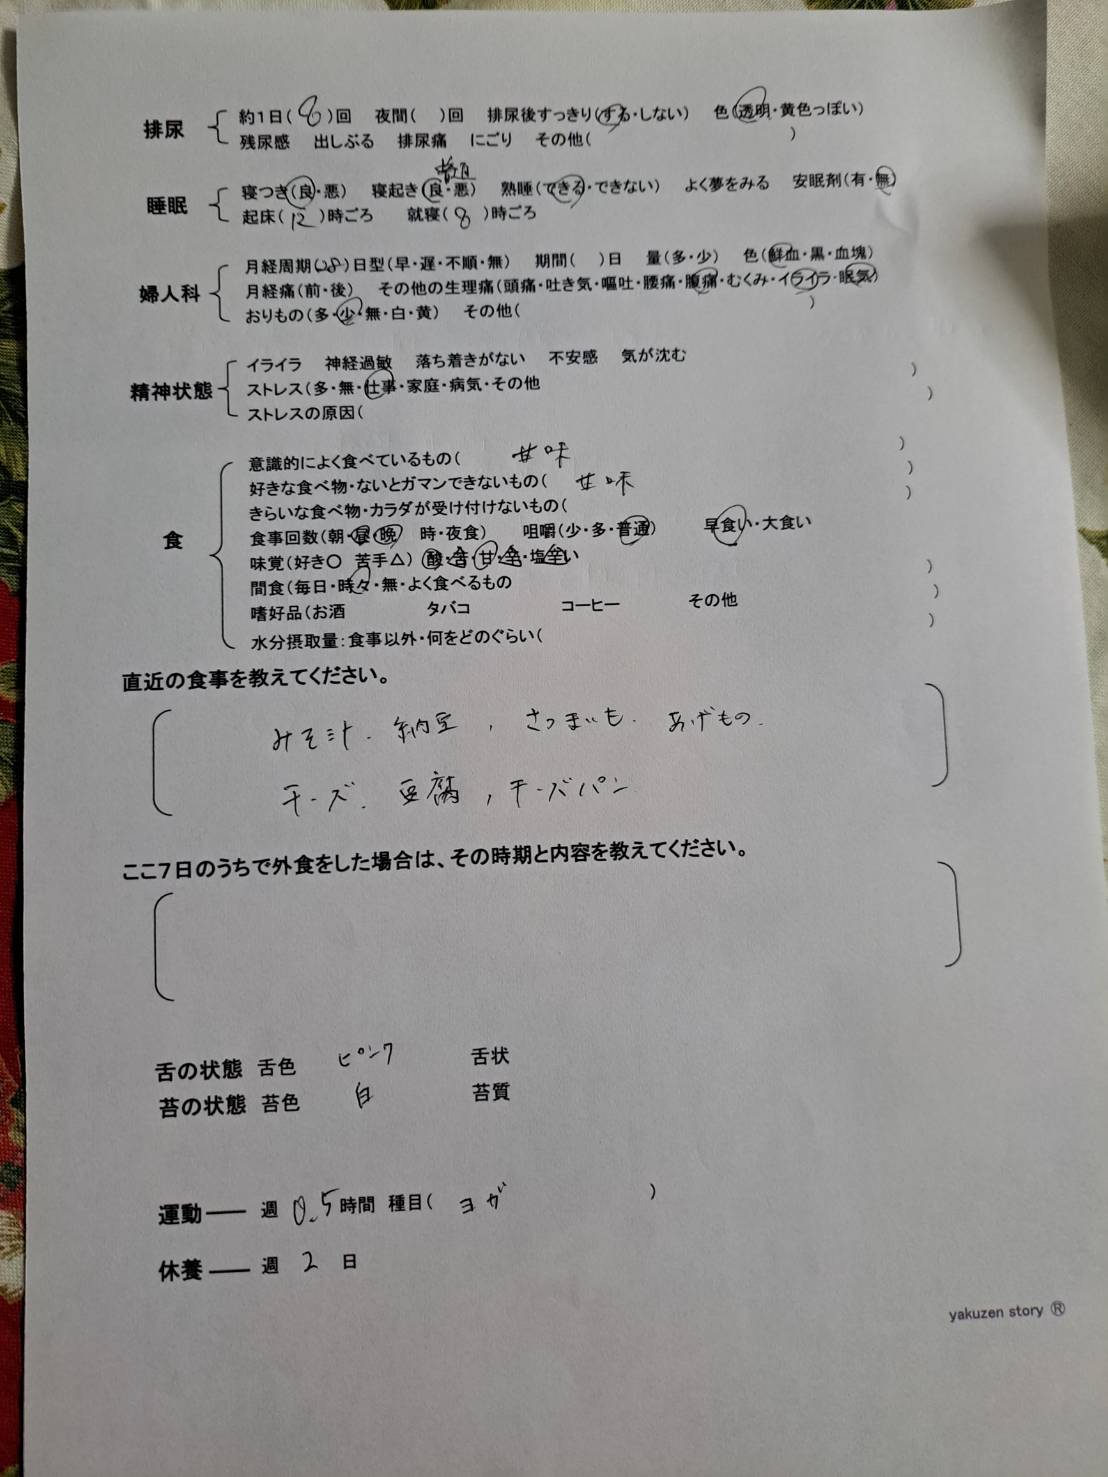 排尿 約1日( 8 )回 夜間( )回 排尿後すっきり(する・しない) 色(透明・黄色っぽい)
残尿感 出しぶる 排尿痛 にごり その他( )
睡眠 寝つき(良・悪) 寝起き(良・悪) 熟睡(できる・できない) よく夢をみる 安眠剤(有・無)
起床( 12 )時ごろ 就寝( 8 )時ごろ
婦人科 月経周期( )日型(早・遅・不順・無) 期間( )日 量(多・少) 色(鮮血・黒・血塊)
月経痛(前・後) その他の生理痛(頭痛・吐き気・嘔吐・腰痛・腹痛・むくみ・イライラ・眠気)
おりもの(多・少・無・白・黄) その他( )
精神状態 イライラ 神経過敏 落ち着きがない 不安感 気が沈む
ストレス(多・無・仕事・家庭・病気・その他 )
ストレスの原因( )
食 意識的によく食べているもの( 甘味 )
好きな食べ物・ないとガマンできないもの( 甘味 )
きらいな食べ物・カラダが受け付けないもの( )
食事回数(朝・昼・晩 時・夜食) 咀嚼(少・多・普通) 早食い・大食い
味覚(好き○ 苦手△) (酸・苦・甘・辛・塩辛い
間食(毎日・時々・無・よく食べるもの )
嗜好品(お酒 タバコ コーヒー その他 )
水分摂取量:食事以外・何をどのぐらい( )
直近の食事を教えてください。
みそ汁. 納豆, さつまいも. あげもの.
チーズ. 豆腐, チーズパン
ここ7日のうちで外食をした場合は、その時期と内容を教えてください。
舌の状態 舌色 ピンク 舌状
苔の状態 苔色 白 苔質
運動── 週 0.5 時間 種目( ヨガ )
休養── 週 2 日
yakuzen story ®